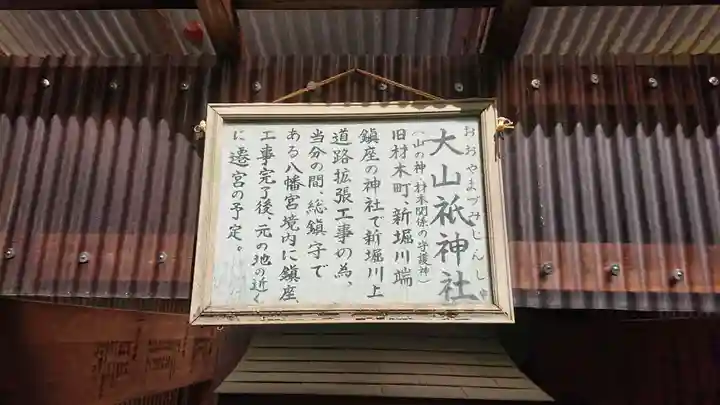 おおやまづみじんじゃ
大山祇神社
（山の神・材木関係の守護神）
旧材木町、新堀川端
鎮座の神社で新堀川上
道路拡張工事の為、
当分の間、総鎮守で
ある八幡宮境内に鎮座、
工事完了後、元の地の近く
に遷宮の予定。